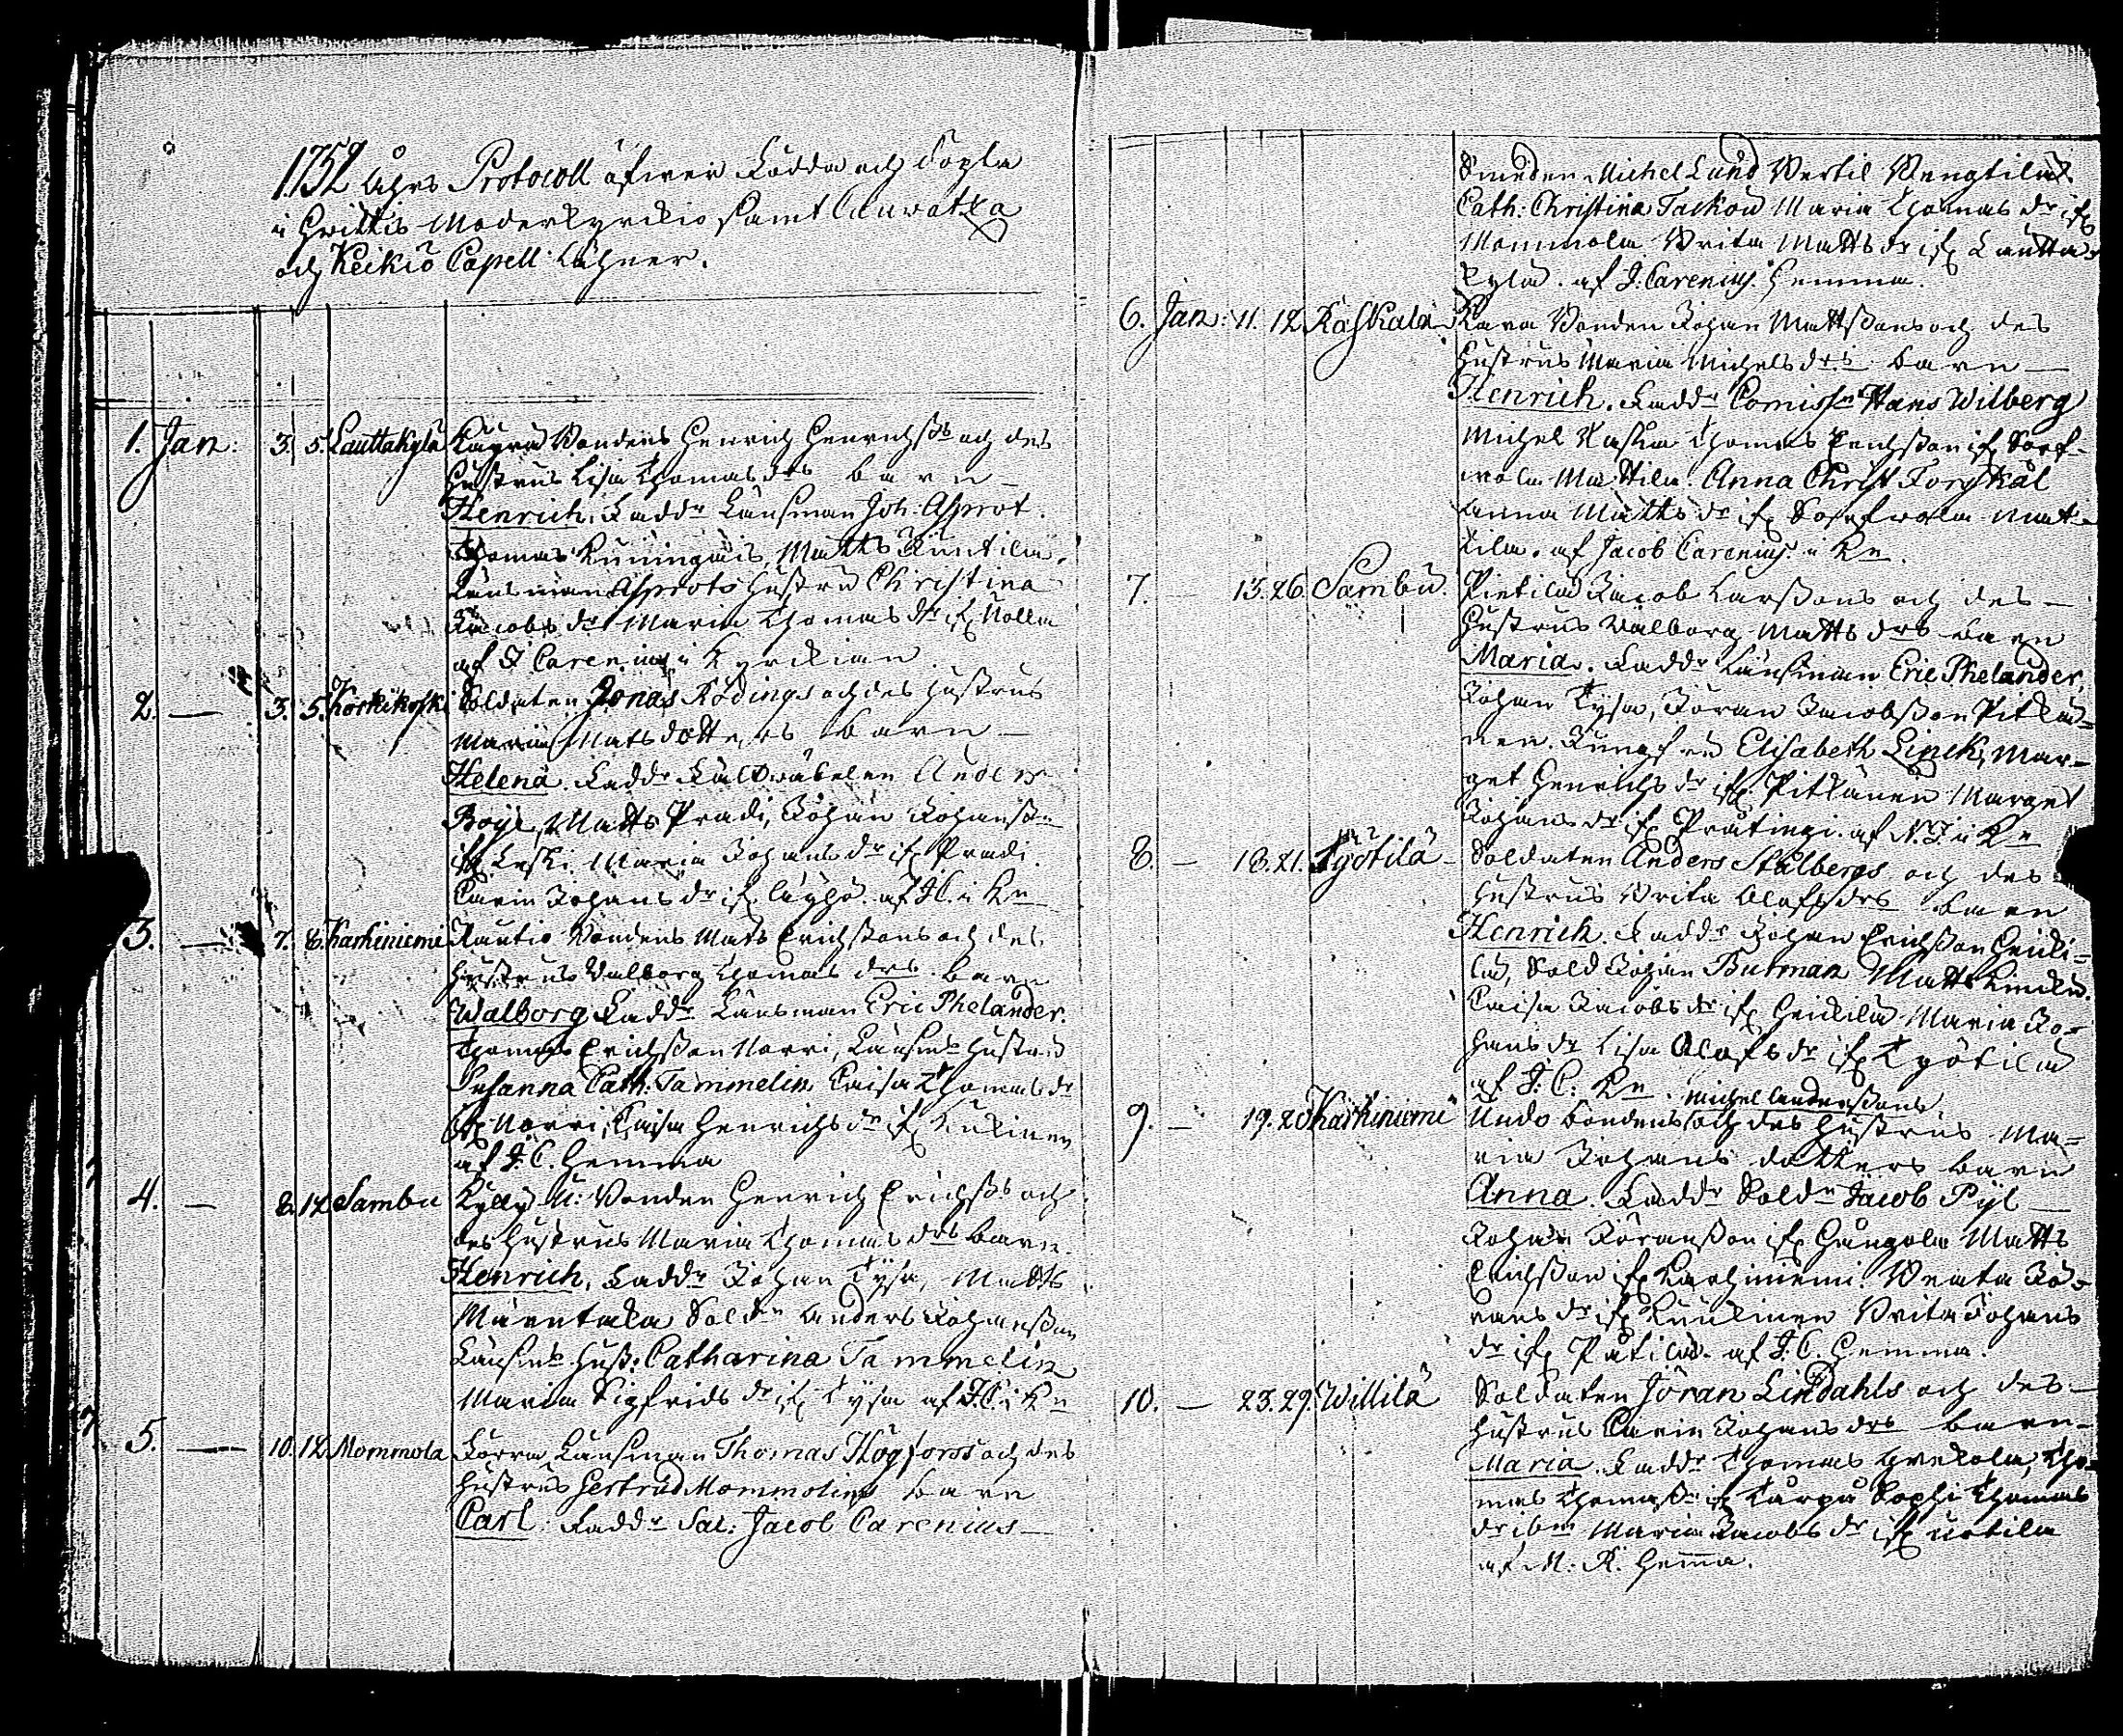 1752 Åhrs Protocoll öfwer Födda och Döpta
i Hvittis Moderkyrckio samt Cauvatxa
och Keikiö Capell Lägner.
1. Jan: 3. 5. Lauttakylä Käyrä Bondens Henrich Henrichss: och des
Hustrus Lisa Thomasdrs barn
Henrich. Faddr Länsman Joh: Asprot.
Thomas Kuningas, Matts Kuntila,
Länsman Asprots Hustru Christina
Jacobs dr Maria Thomas dr if Nolla
af J Carenius i Kyrckian
2. — 3. 5. Korkikoski Soldaten Jonas Rödings och des Hustrus
Maria Matsdotters barn —
Helena. Faddr Fältwäbelen Anders
Boije, Matts Pradi, Johan Johansson
if Leski. Maria Johansdr if Pradi.
Carin Johans dr if af J.C. i Kn
3. — 7. 8. Karhiniemi Rautio Bondens Mats Erichssons och des
Hustrus Valborg Thomas drs barn
Walborg Faddr Länsman Eric Phelander.
Thomas Erichsson Norri, Länsms Hustru
Susanna Cath: Tammelin, Caisa Thomas dr
if Norri, Caisa Henrichs dr if Kukinen
af J. C. hemma
4. — 8. 12 Sambu Kylly U: Bonden Henrich Erichss: och
des Hustrus Maria Thomas drs barn.
Henrich, Faddr Johan Tysa, Matts
Märentaka Soldn Anders Johansson
Länsms Hust: Catharina Tammelin
Maria Sigfrids dr if Tysa af J.C. i Kn
5. — 10. 12 Mommola Korra Länsman Thomas Högfors och des
Hustrus Gertrud Mommolins barn
Carl: Faddr Sac: Jacob Carenius —
Smeden Michel Lund Bertil Bengtilä.
Cath: Christina Tackou Maria Thomas dr if
Mommola Brita Matts dr if Lautta-
kylä. af J: Carenius. hemma.
6. Jan: 11. 12 Räskälä Kara Bonden Johan Mattssons och des
Hustrus Maria Michels drs barn —
Henrich. Faddr Comissn Hans Wilberg
Michel Kaska Thomas Erichsson if Sorf-
wola Mattila. Anna Christ Forsskåhl
Anna Matts dr if Sorfwola Mat-
tila. af Jacob Carenius. i Kn.
7. — 13. 26. Sambu. Pietilä Jacob Larssons och des —
Hustrus Walborg Matts drs barn
Maria. Faddr Länsman Eric Phelander,
Johan Tysa, Jöran Jacobsson Pitkä-
nen. Jungfru Elisabeth Linck, Mar-
get Henrichs dr if Pitkänen Marget
Johans dr if af N.I. i Kn
8. — 18. 21. Kyötilä Soldaten Anders Stålbergs och des
Hustrus Brita Olofs drs barn
Henrich. Faddr Johan Erichsson Heicki-
lä, Sold Johan Burman Matts
Caisa Jacobs dr if Heickilä Maria Jo-
hans dr Lisa Olofs dr if Kyötilä
af J: C: Kn. Michel Anderssons
9. — 19. 20 Karhiniemi Undo Bondens och des Hustrus Ma-
ria Johans dotters barn
Anna. Faddr Soldn Jacob Pijl —
Johan Jöransson if Matts
Erichsson if Karhiniemi. Beata Jö-
rans dr if Kuukinen Brita Johans
dr if af J. C. hemma.
10. — 23. 29. Willilä Soldaten Jöran Lindahls och des —
Hustrus Carin Johans drs barn —
Maria. Faddr Thomas Tho-
mas Thomass: if Sophi Thomas
dr ibm Maria Jacobs dr if
af M: R. hemma.